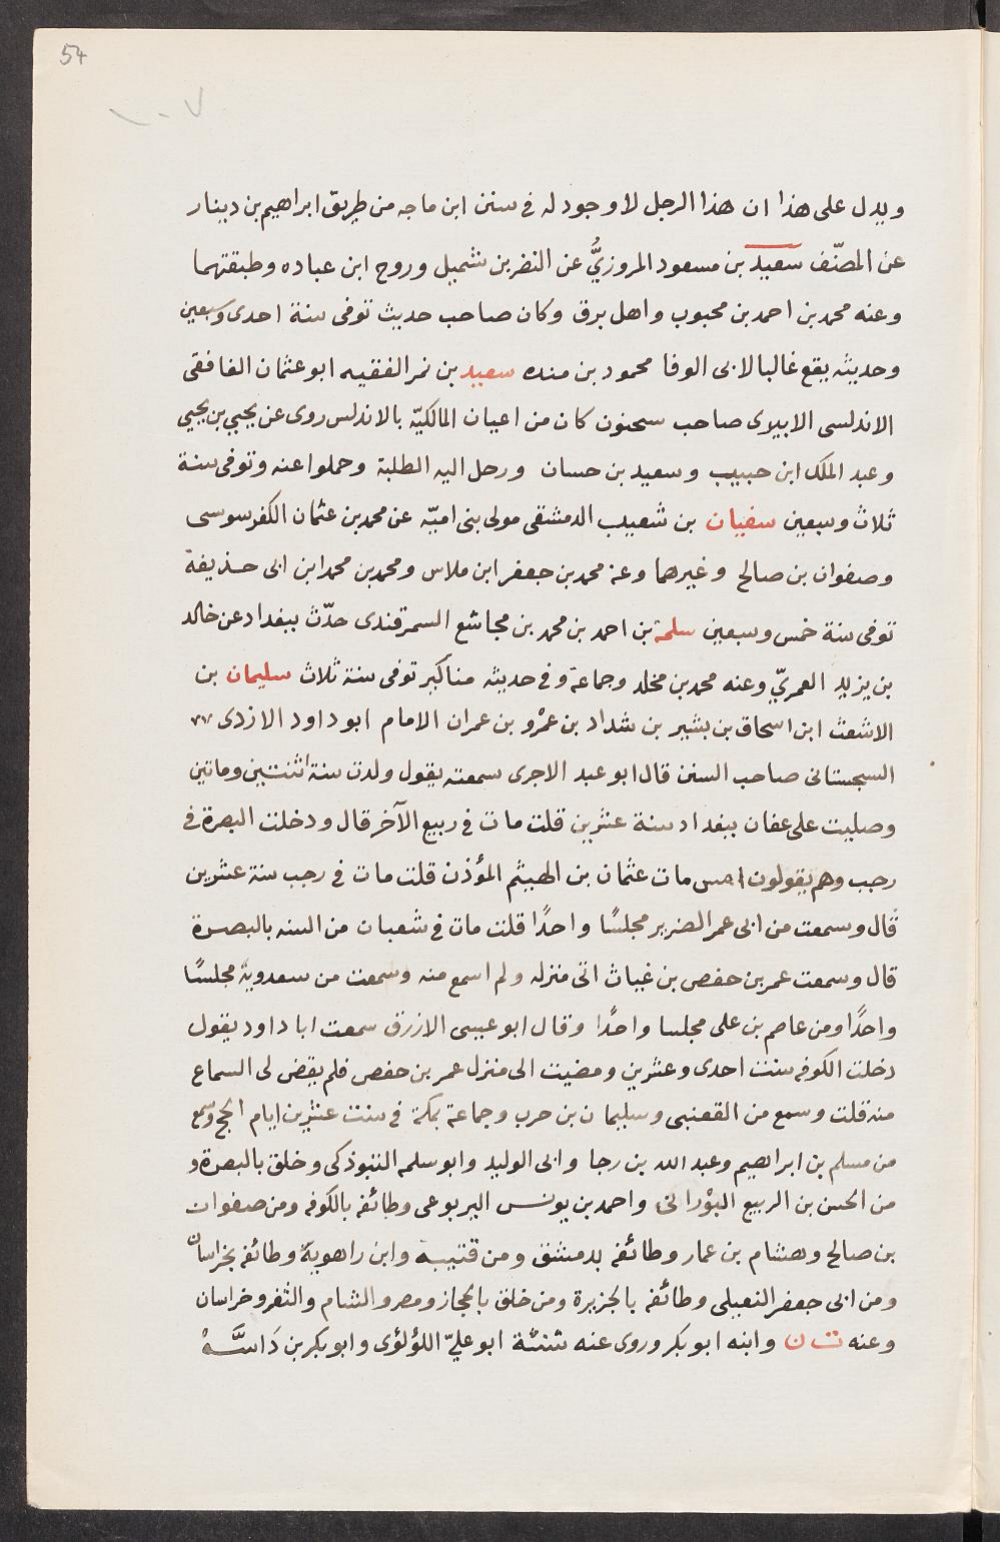 54
١٠٧
ويدل على هذا ان هذا الرجل لا وجود له فى سنن ابن ماجه من طريق ابراهيم بن دينار
عن المصنّف سعيد بن مسعود المروزيُّ عن النضر بن شميل وروح ابن عباده وطبقتهما
وعنه محمد بن احمد بن محبوب واهل برق وكان صاحب حديث توفى سنة احدى وسبعين
وحديثه يقع غالبا لابى الوفا محمود بن منده سعيد بن نمر الفقيه ابو عثمان الغافقى
الاندلسى الابيرى صاحب سحنون كان من اعيان المالكيّة بالاندلس روى عن يحيي بن يحيي
وعبد الملك ابن حبيب وسعيد بن حسان ورحل اليه الطلبة وحملوا عنه وتوفى سنة
ثلاث وسبعين سفيان بن شعيب الدمشقى مولى بنى اميّه عن محمد بن عثمان الكفرسوسى
وصفوان بن صالح وغيرهما وعنه محمد بن جعفر ابن ملاس ومحمد بن محمد ابن ابى حذيفة
توفى سنة خمس وسبعين سلمة بن احمد بن محمد بن مجاشع السمرقندى حدّث ببغداد عن خالد
بن يزيد العمريّ وعنه محمد بن مخلد وجماعة وفى حديثه مناكير توفى سنة ثلاث سليمان بن
الاشعث ابن اسحاق بن بشير بن شداد بن عمْرو بن عمران الامام ابو داود الازدى
السجستانى صاحب السنن قال ابو عبد الاجرى سمعته يقول ولدت سنة اثنتين ومائتين
وصليت على عفان ببغداد سنة عشرين قلت مات فى ربيع الآخر قال ودخلت البصرة فى
رجب وهم يقولون امس مات عثمان بن الهيثم المؤذن قلت مات فى رجب سنة عشرين
قال وسمعت من ابى عمر الضرير مجلسًا واحدًا قلت مات فى شعبان من السنه بالبصرة
قال وسمعت عمر بن حفص بن غياث اتى منزله ولم اسمع منه وسمعت من سعدوية مجلسًا
واحدًا ومن عاصم بن على مجلسا واحدًا وقال ابو عيسى الازرق سمعت ابا داود يقول
دخلت الكوفه سنت احدى وعشرين ومضيت الى منزل عمر بن حفص فلم يقض لى السماع
منه قلت وسمع من القعنبى وسليمان بن حرب وجماعة بمكة فى سنت عشرين ايام الحج وسمع
من مسلم بن ابراهيم وعبد الله بن رجا وابى الوليد وابو سلمه التبوذكى وخلق بالبصرة و
من الحسن بن الربيع البوْرانى واحمد بن يونس اليربوعى وطائفه بالكوفه ومن صفوان
بن صالح وهشام بن عمار وطائفه بدمشق ومن قتيبة وابن راهوية وطائفه بخراسان
ومن ابى جعفر النفيلى وطائفه بالجزيرة ومن خلق بالحجاز ومصر والشام والثغر وخراسان
وعنه ت ن وابنه ابو بكر وروى عنه سننه ابو عليّ اللؤلؤى وابو بكر بن دَاسَّهْ